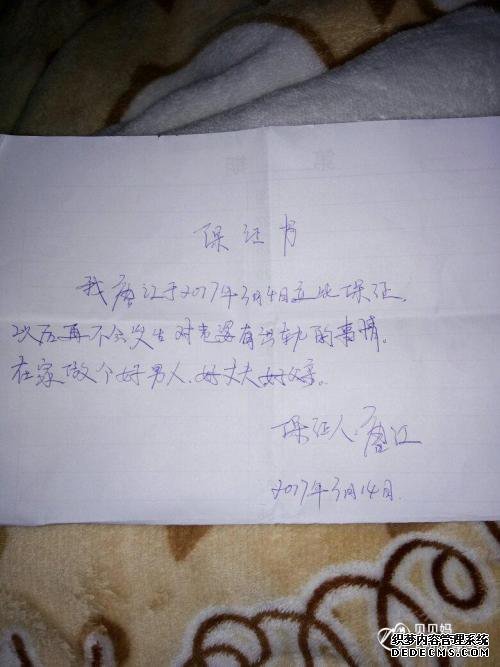 第 期
保证书
我唐江于2017年3月4日立此保证,
以后再不会发生对老婆有出轨的事情。
在家做个好男人、好丈夫好父亲。
保证人:唐江
2017年3月14日.
贝贝妈
织梦内容管理系统
DEDECMS.COM